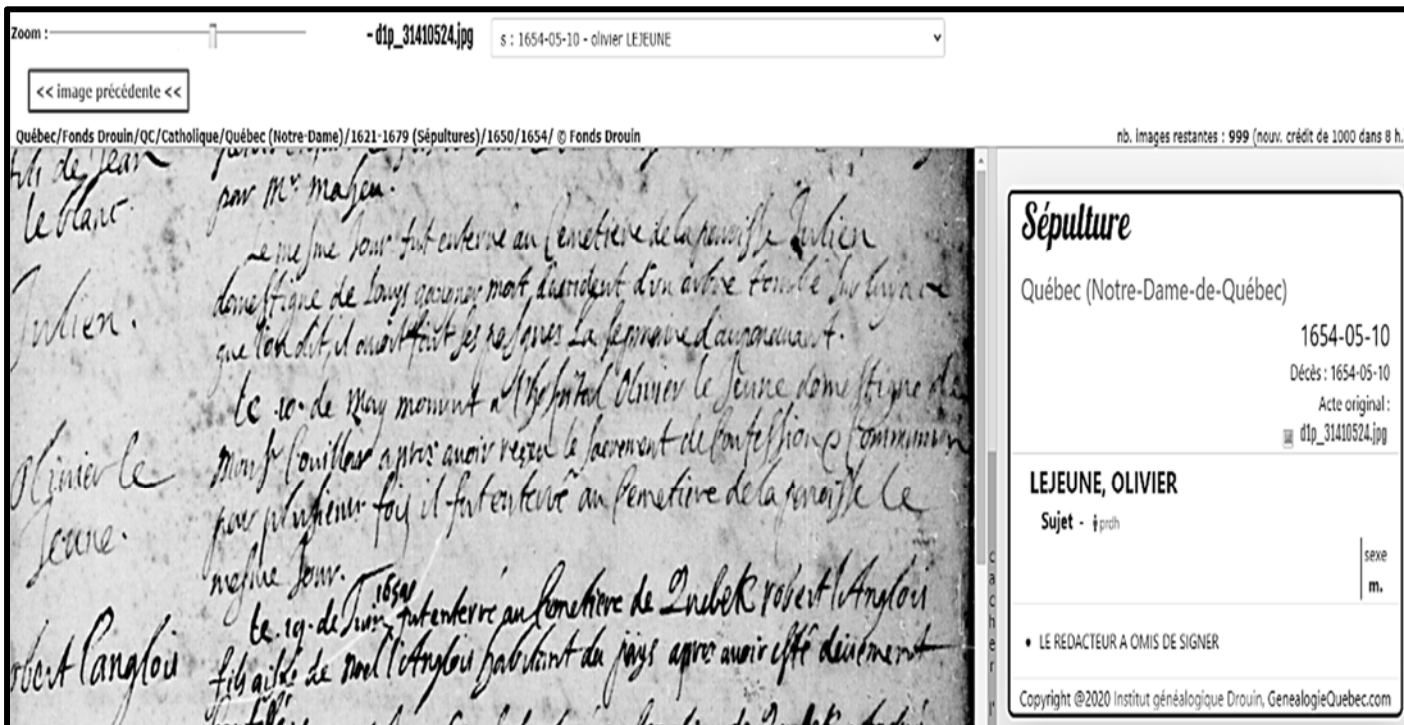 Zoom :
- d1p_31410524.jpg
s : 1654-05-10 - olivier LEJEUNE
<< image précédente <<
Québec/Fonds Drouin/QC/Catholique/Québec (Notre-Dame)/1621-1679 (Sépultures)/1650/1654/ © Fonds Drouin
nb. images restantes : 999 (nouv. crédit de 1000 dans 8 h.
fils de Jean
le blanc.
par Mr. maheu.
Julien.
Le mesme Jour fut enterré au Cemetiere de la paroisse Julien
domestique de Louys mort d'un arbre tombé sur luy a ce
que l'on dit, il avoit fait ses pasques La sepmaine d'auparavant.
Olivier le
Jeune.
Le .10. de May mourut a l'hospital Olivier le Jeune domestique de
Monsr Couillar apres avoir receu le sacrement de Confession & Communion
par plusieurs fois il fut enterré au Cemetiere de la paroisse le
mesme Jour.
robert l'anglois
1654
Le .19. de Juin fut enterré au Cemetiere de Quebek robert l'Anglois
fils aisné de noel l'Anglois habitant du pays apres avoir esté deüement
cacher
Sépulture
Québec (Notre-Dame-de-Québec)
1654-05-10
Décès : 1654-05-10
Acte original :
d1p_31410524.jpg
LEJEUNE, OLIVIER
Sujet - prdh
sexe
m.
• LE REDACTEUR A OMIS DE SIGNER
Copyright @2020 Institut généalogique Drouin, GenealogieQuebec.com